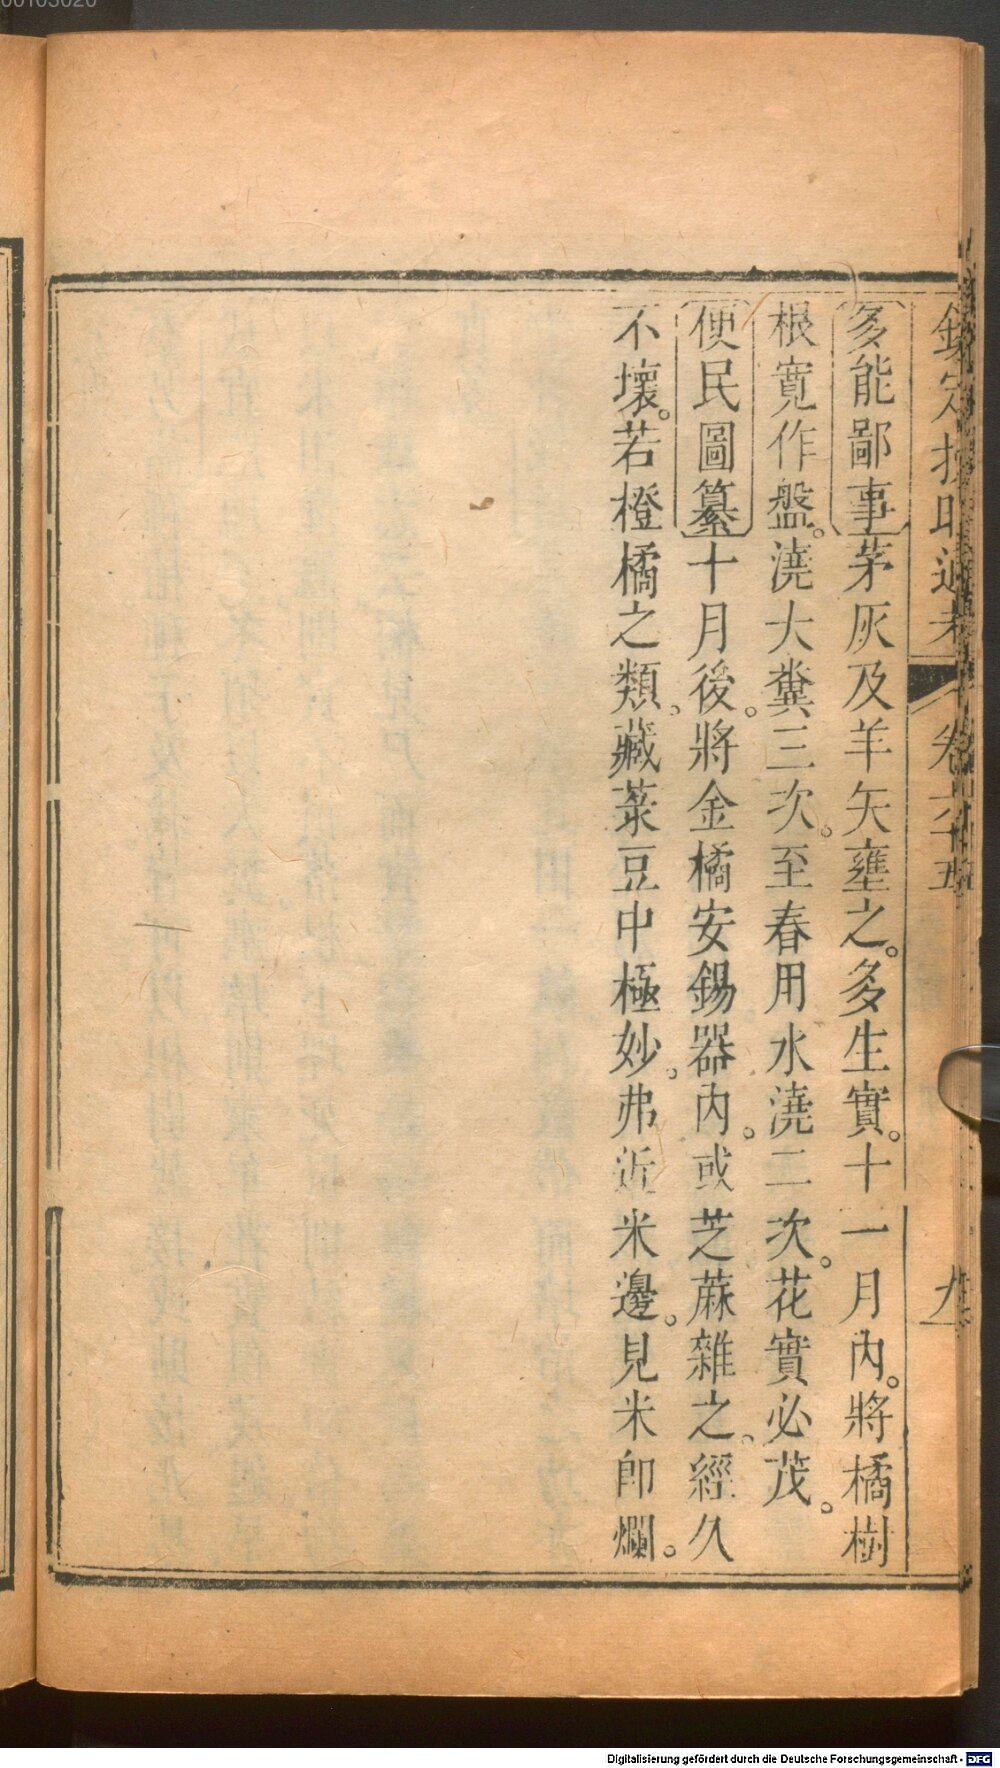 欽定授時通考 卷六十五 九
多能鄙事茅灰及羊矢壅之。多生實。十一月內。將橘樹
根寬作盤。澆大糞三次。至春用水澆二次。花實必茂。
便民圖纂十月後。將金橘安錫器內。或芝蔴雜之。經久
不壞。若橙橘之類。藏菉豆中極妙。弗近米邊。見米卽爛。
Digitalisierung gefördert durch die Deutsche Forschungsgemeinschaft - DFG